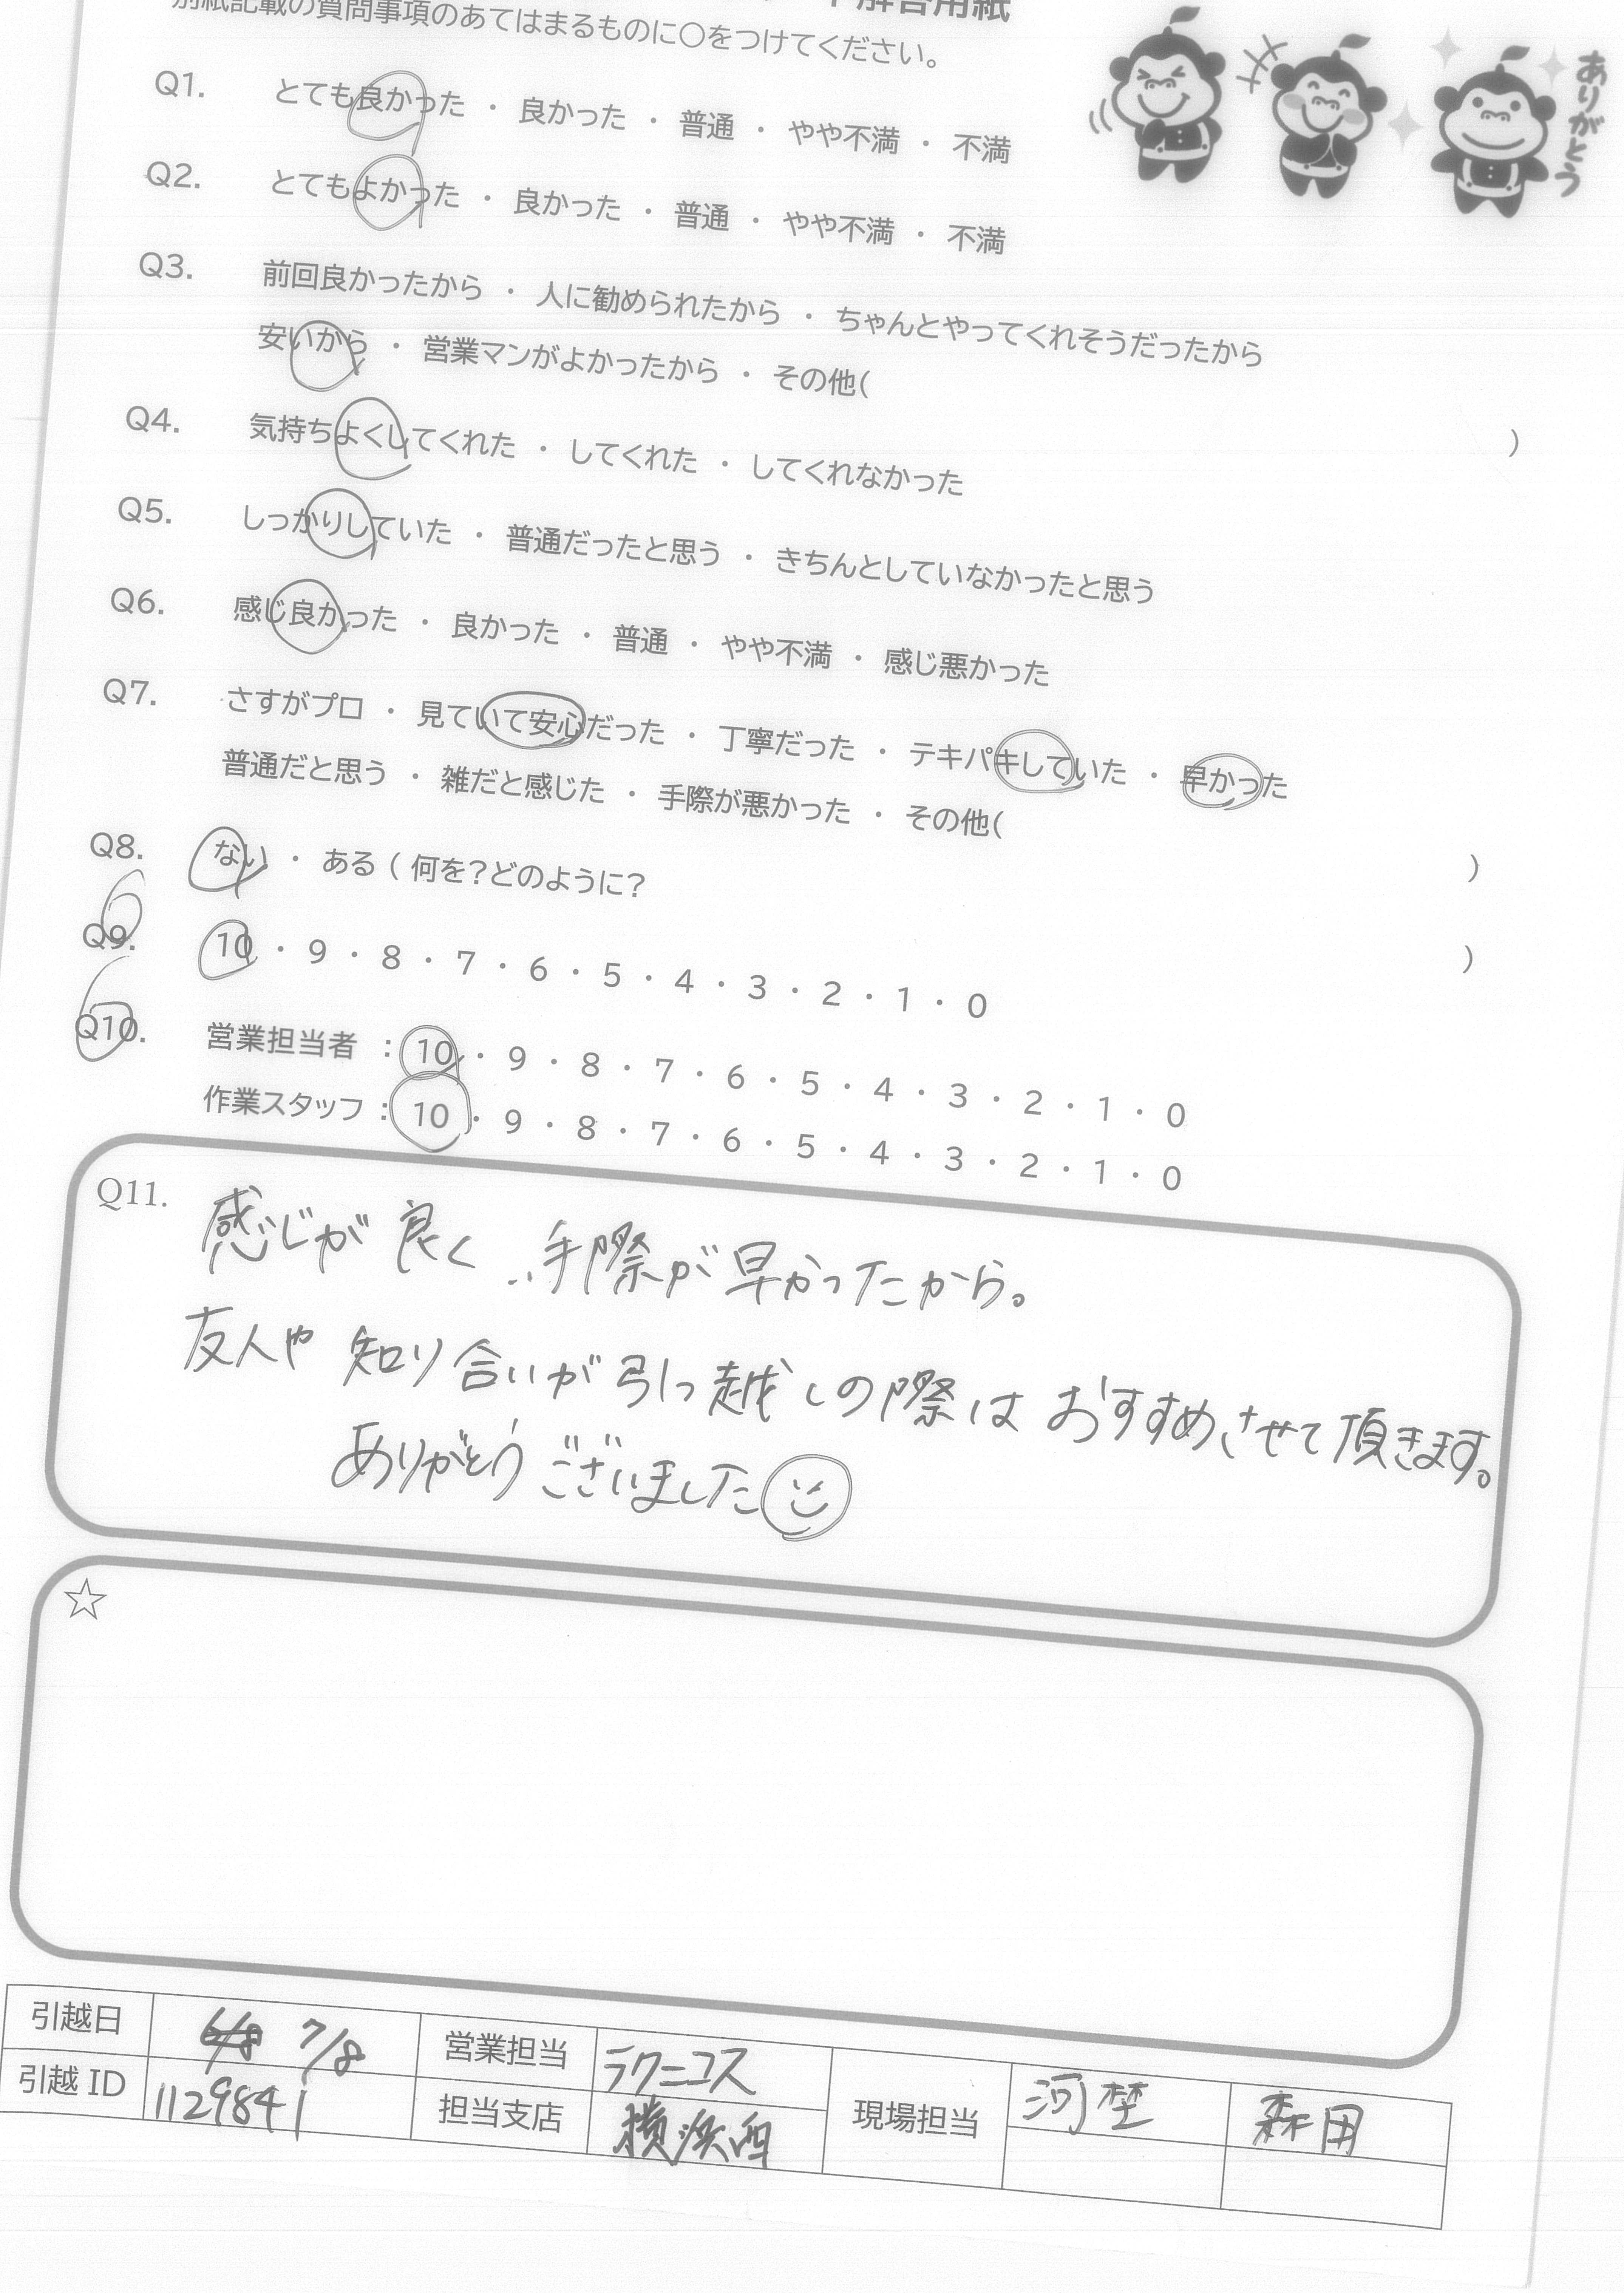 別紙記載の質問事項のあてはまるものに○をつけてください。
ありがとう
Q1. とても良かった ・ 良かった ・ 普通 ・ やや不満 ・ 不満
Q2. とてもよかった ・ 良かった ・ 普通 ・ やや不満 ・ 不満
Q3. 前回良かったから ・ 人に勧められたから ・ ちゃんとやってくれそうだったから
安いから ・ 営業マンがよかったから ・ その他( )
Q4. 気持ちよくしてくれた ・ してくれた ・ してくれなかった
Q5. しっかりしていた ・ 普通だったと思う ・ きちんとしていなかったと思う
Q6. 感じ良かった ・ 良かった ・ 普通 ・ やや不満 ・ 感じ悪かった
Q7. さすがプロ ・ 見ていて安心だった ・ 丁寧だった ・ テキパキしていた ・ 早かった
普通だと思う ・ 雑だと感じた ・ 手際が悪かった ・ その他( )
Q8. ない ・ ある ( 何を?どのように? )
Q9. 10 ・ 9 ・ 8 ・ 7 ・ 6 ・ 5 ・ 4 ・ 3 ・ 2 ・ 1 ・ 0
Q10. 営業担当者 : 10 ・ 9 ・ 8 ・ 7 ・ 6 ・ 5 ・ 4 ・ 3 ・ 2 ・ 1 ・ 0
作業スタッフ : 10 ・ 9 ・ 8 ・ 7 ・ 6 ・ 5 ・ 4 ・ 3 ・ 2 ・ 1 ・ 0
Q11. 感じが良く、手際が早かったから。
友人や知り合いが引っ越しの際はおすすめさせて頂きます。
ありがとうございました
☆
引越日 6/8 7/8 営業担当 ラクニコス
引越 ID 1129841 担当支店 横浜西 現場担当 河埜 森田